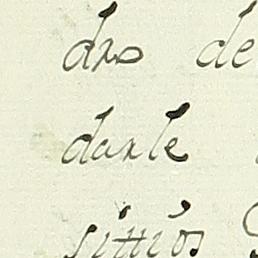 dro de
darle
sittios